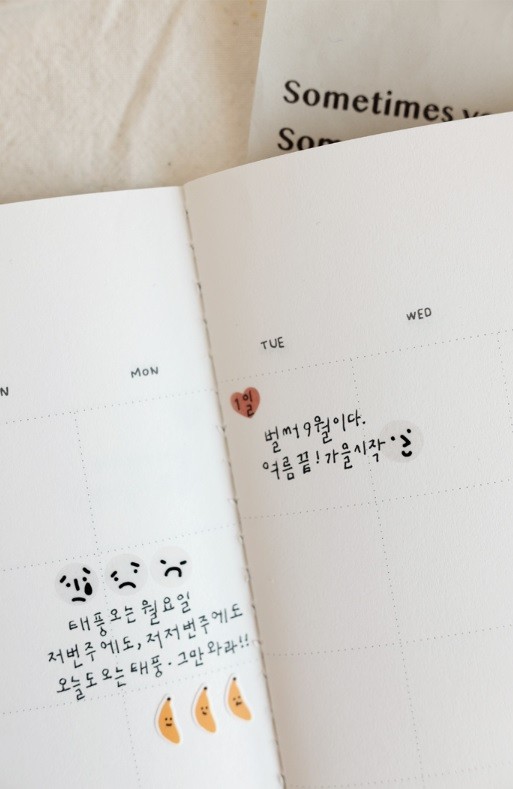 Sometimes
N
MON
TUE
WED
1일
벌써 9월이다.
여름 끝! 가을 시작
태풍 오는 월요일
저번주에도, 저저번주에도
오늘도 오는 태풍. 그만와라!!